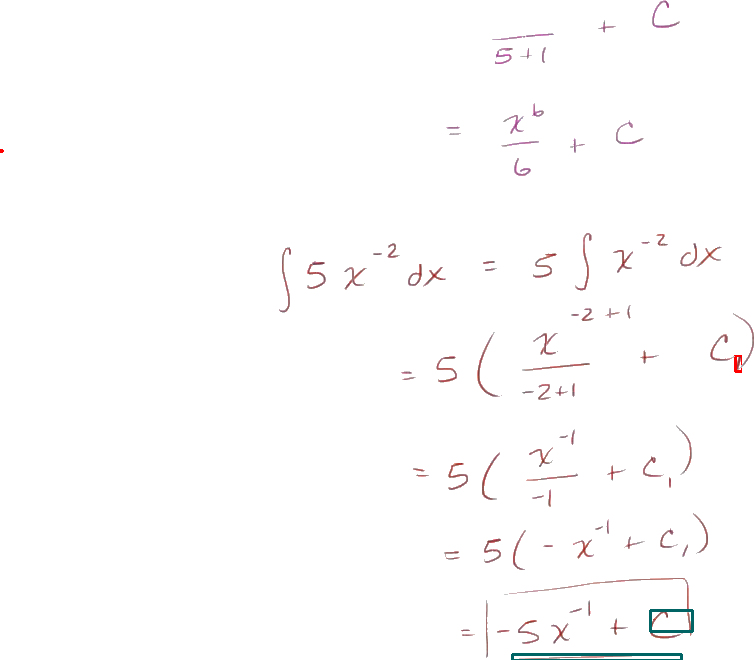 ―― + C
5+1
= x^6/6 + C
∫ 5 x^-2 dx = 5 ∫ x^-2 dx
= 5 ( x^-2+1/-2+1 + C )
= 5 ( x^-1/-1 + C₁ )
= 5 ( - x^-1 + C₁ )
= -5 x^-1 + C